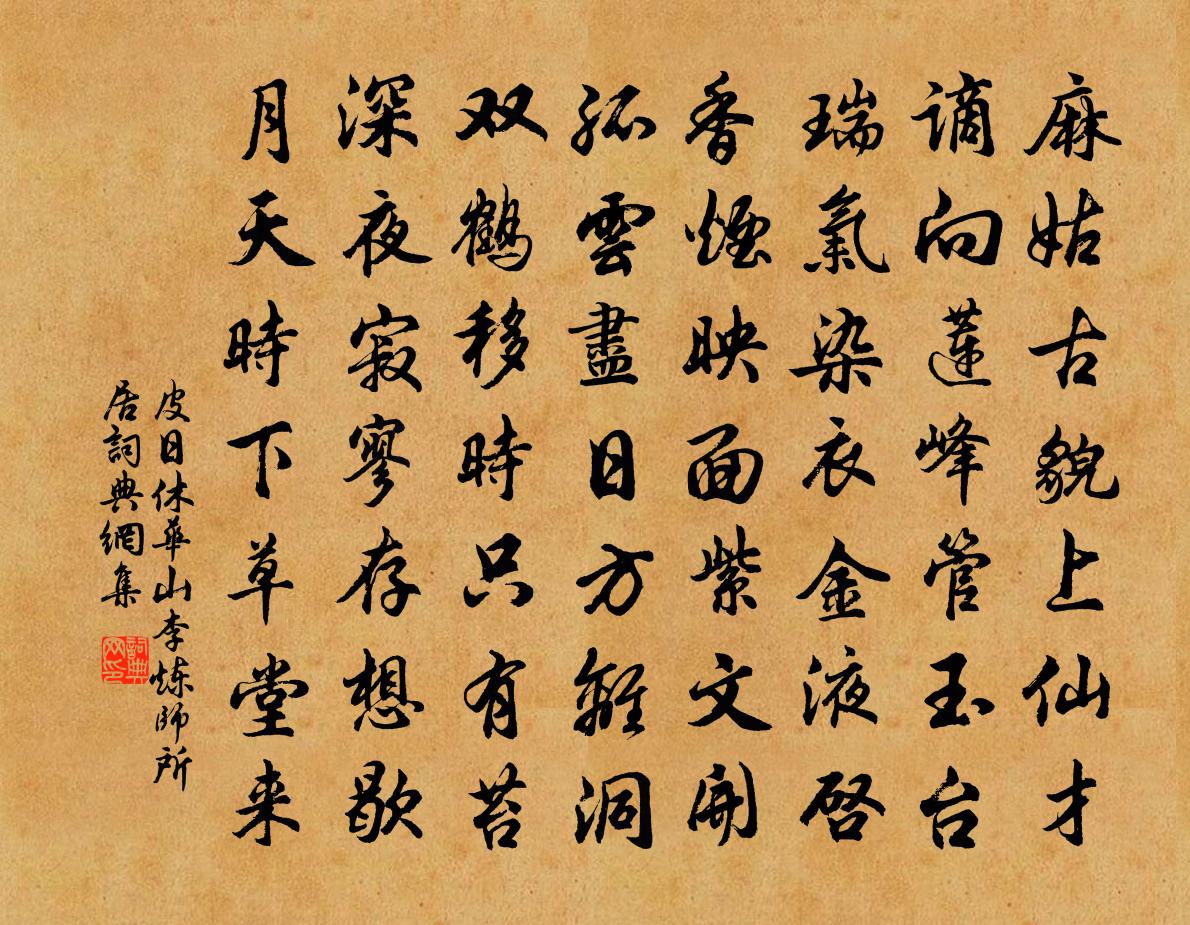 麻姑古貌上仙才
谪向蓮峰管玉台
瑞氣染衣金液启
香煙映面紫文開
孤雲盡日方離洞
双鶴移時只有苔
深夜寂寥存想歇
月天時下草堂来
皮日休華山李炼師所
居詞典網集
詞典
网印